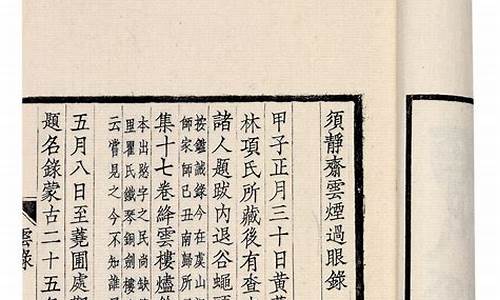 須靜齋雲煙過眼錄
甲子正月三十日黃
林項氏所藏後有查
諸人題跋內退谷蠅頭
按鑑誡錄今在虞山
師家師己丑南歸所
集十七卷絳雲樓燼
本出路字之民尚缺
里瞿氏鐵琴銅劍樓
云嘗見之今不知誰
五月八日至蕘圃處
題名錄蒙古二十五
雲錄